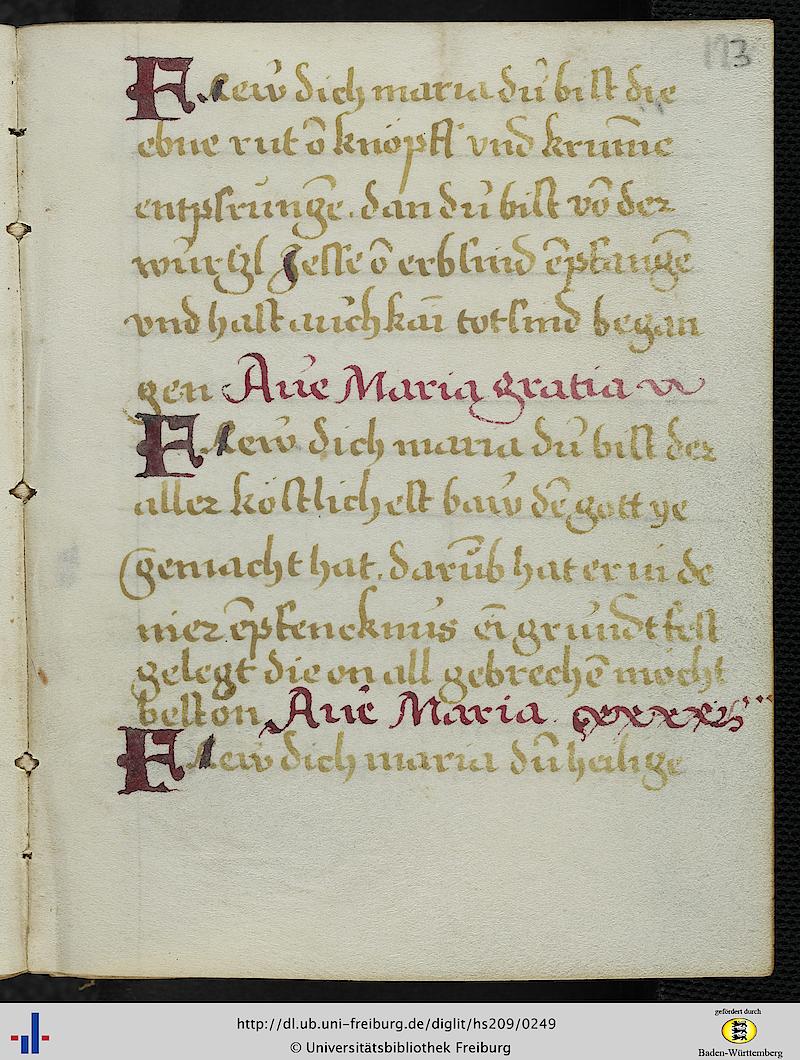 193
Frew dich maria dŭ bist die
ebne rut ō knöpff vnd krum̄e
entpsrŭngē. dan dŭ bist vō der
wŭrtzl Jesse ō erbsŭnd ēpfangē
vnd hast aŭch kaī totsŭnd began
gen Aŭe Maria gratia
Frew dich maria dŭ bist der
aller köstlichest baw dē gott ye
gemacht hat. darŭb hat er in de
iner ēpfencknŭs eī grŭndtfest
gelegt die on all gebrechē möcht
beston Aŭe Maria.
Frew dich maria dŭ heilige
http://dl.ub.uni-freiburg.de/diglit/hs209/0249
© Universitätsbibliothek Freiburg
gefördert durch
Baden-Württemberg